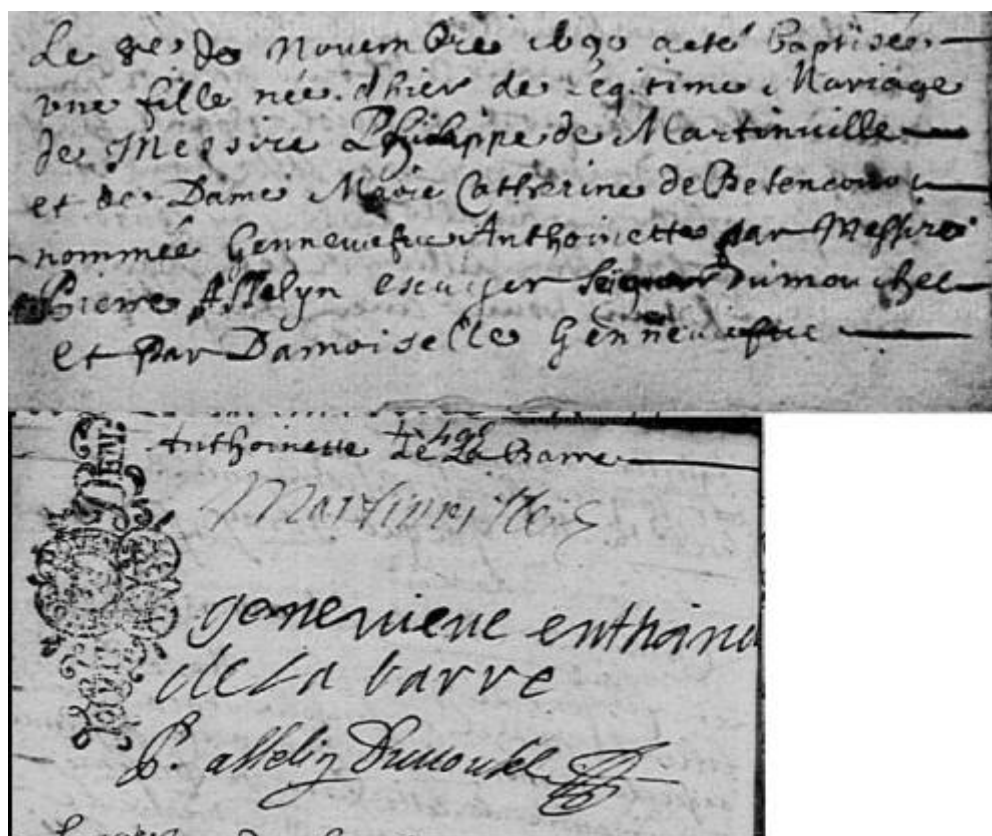 Le 8e de Novembre 1690 a eté baptisée
vne fille née d'hier de légitime Mariage
de Messire Philippe de Martinuille
et de Dame Marie Catherine de Betencour
nommée Genneuefue Anthoinette par Messire
Pierre Asselyn escuyer seigneur Dumouchel
et par Damoiselle Genneuefue
Anthoinette de La Barre
Martinuille
geneuieue enthoine
de La barre
P. asselin Dumouchel